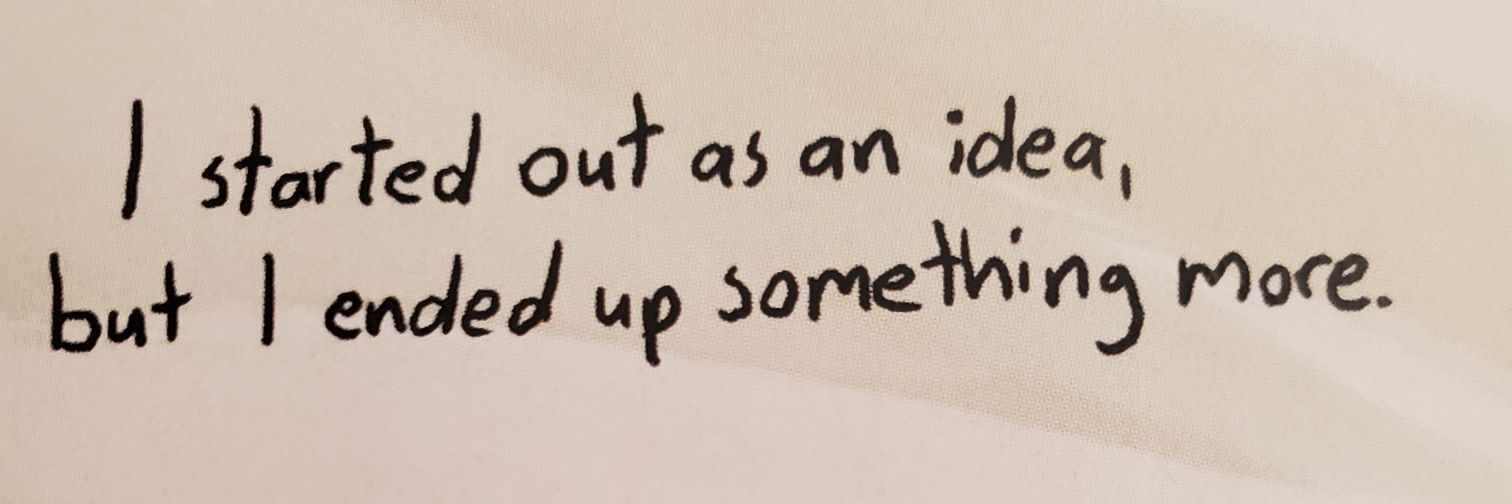 I started out as an idea,
but I ended up something more.